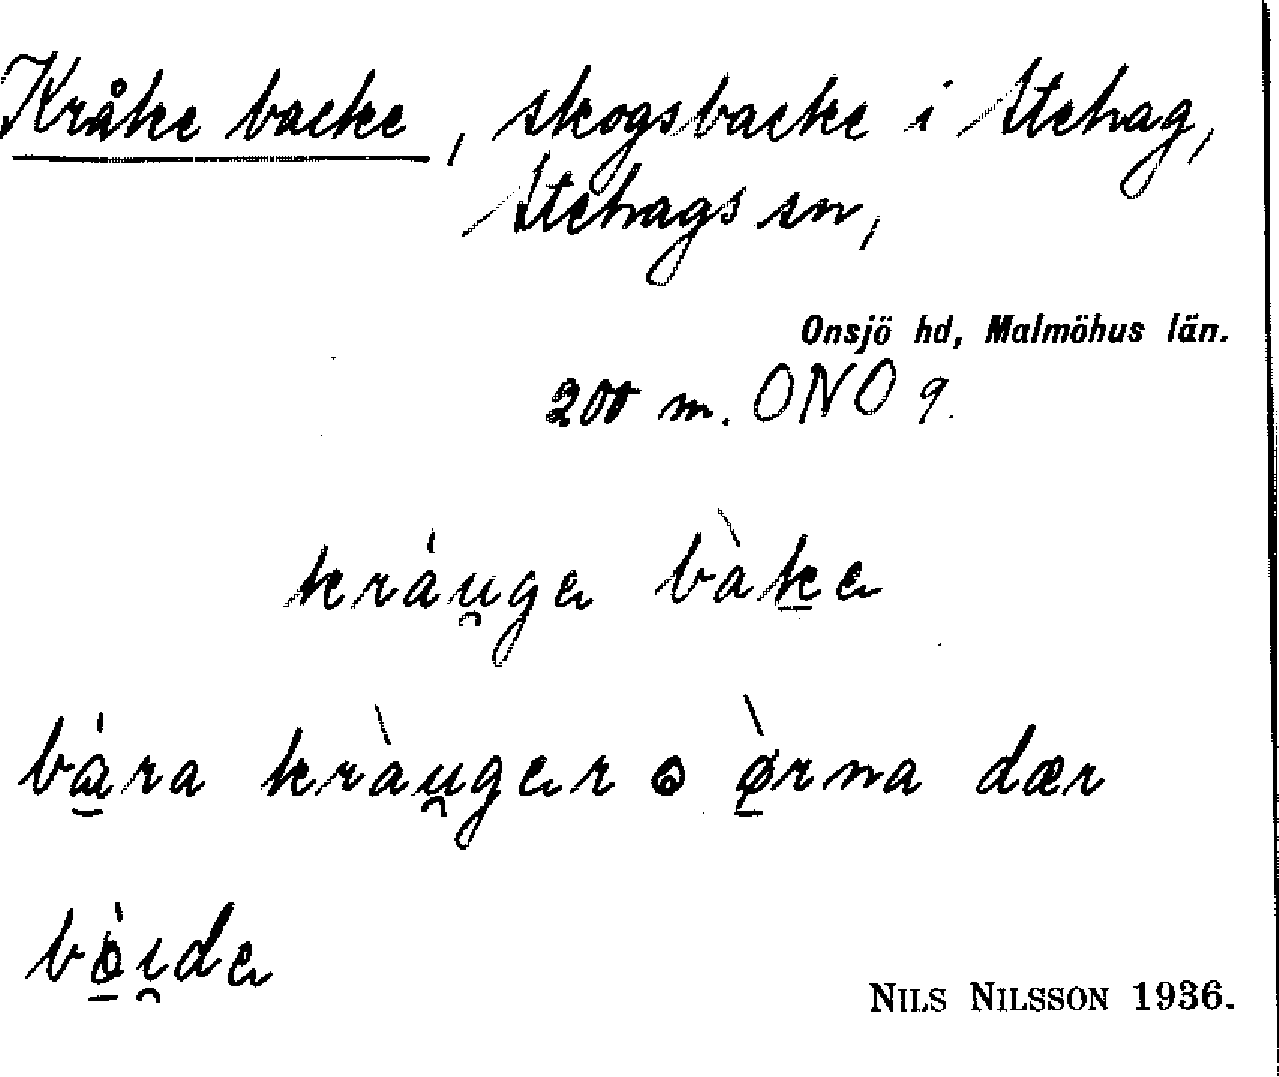 Kråke backe, skogsbacke i Stehag,
Stehags sn,
Onsjö hd, Malmöhus län.
200 m. ONO 9.
kráu̯gə bàk̠ə
bá̠ra kràu̯gər ɷ ø̠̀rna dær
bò̠i̯də
NILS NILSSON 1936.